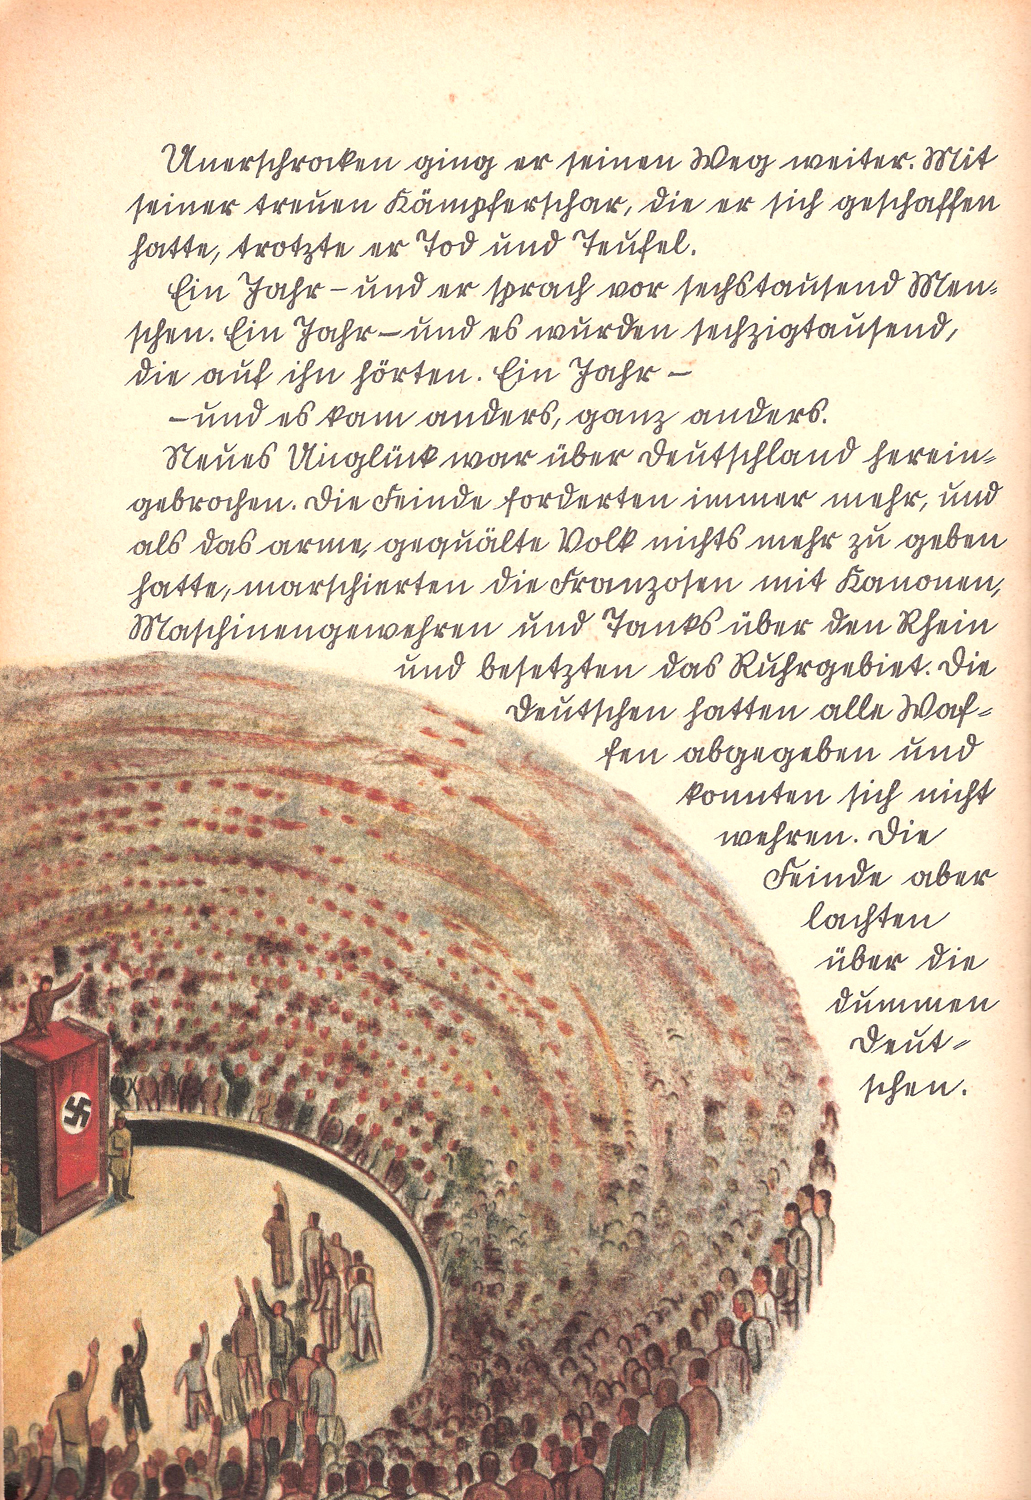 Unerschrocken ging er seinen Weg weiter. Mit
seiner treuen Kämpferschar, die er sich geschaffen
hatte, trotzte er Tod und Teufel.
Ein Jahr – und er sprach vor sechstausend Men=
schen. Ein Jahr – und es wurden sechzigtausend,
die auf ihn hörten. Ein Jahr –
– und es kam anders, ganz anders.
Neues Unglück war über Deutschland herein=
gebrochen. Die Feinde forderten immer mehr, und
als das arme, gequälte Volk nichts mehr zu geben
hatte, marschierten die Franzosen mit Kanonen,
Maschinengewehren und Tanks über den Rhein
und besetzten das Ruhrgebiet. Die
Deutschen hatten alle Waf=
fen abgegeben und
konnten sich nicht
wehren. Die
Feinde aber
lachten
über die
dummen
Deut=
schen.